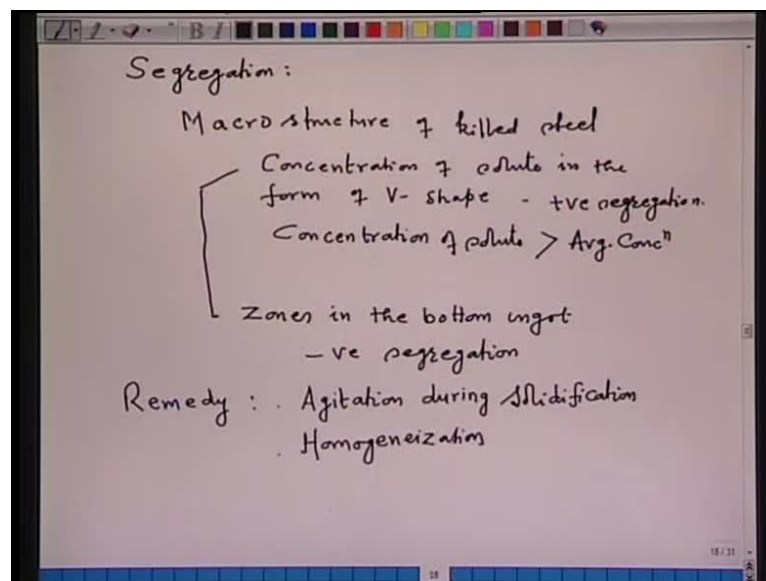 B I
Segregation :
Macrostructure of killed steel
Concentration of solute in the
form of V- shape - +ve segregation.
Concentration of solute > Avg. Concⁿ
Zones in the bottom ingot
- ve segregation
Remedy : . Agitation during Solidification
. Homogeneization
18 / 31
18